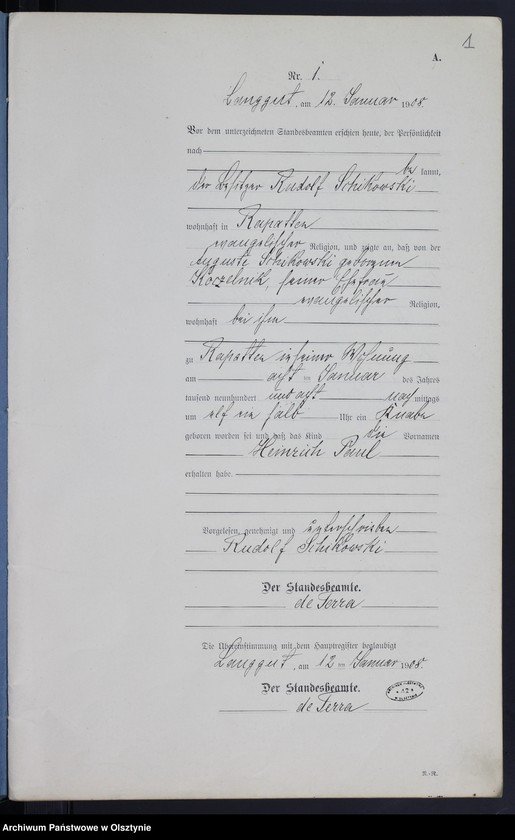 1
A.
Nr. 1.
Langgut, am 12. Januar 1908
Vor dem unterzeichneten Standesbeamten erschien heute, der Persönlichkeit
nach
be kannt,
der Besitzer Rudolf Schikowski
wohnhaft in Rapatten
evangelischer Religion, und zeigte an, daß von der
Auguste Schikowski geborenen
Koczelnik, seiner Ehefrau
evangelischer Religion,
wohnhaft bei ihm
zu Rapatten in seiner Wohnung
am acht ten Januar des Jahres
tausend neunhundert und acht nach mittags
um elf ein halb Uhr ein Knabe
geboren worden sei und daß das Kind die Vornamen
Heinrich Paul
erhalten habe.
Vorgelesen, genehmigt und unterschrieben
Rudolf Schikowski
Der Standesbeamte.
de Terra
Die Übereinstimmung mit dem Hauptregister beglaubigt
Langgut, am 12 ten Januar 1908
Der Standesbeamte.
de Terra
R.-R.
Archiwum Państwowe w Olsztynie